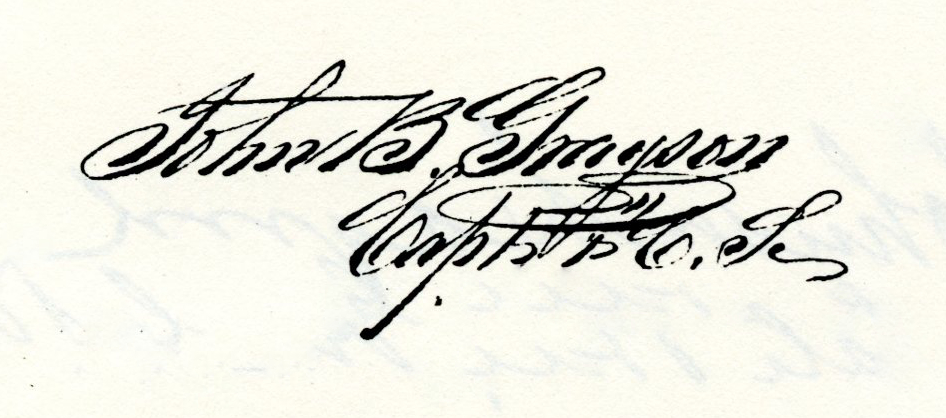 John B. Grayson
Capt. & C. S.